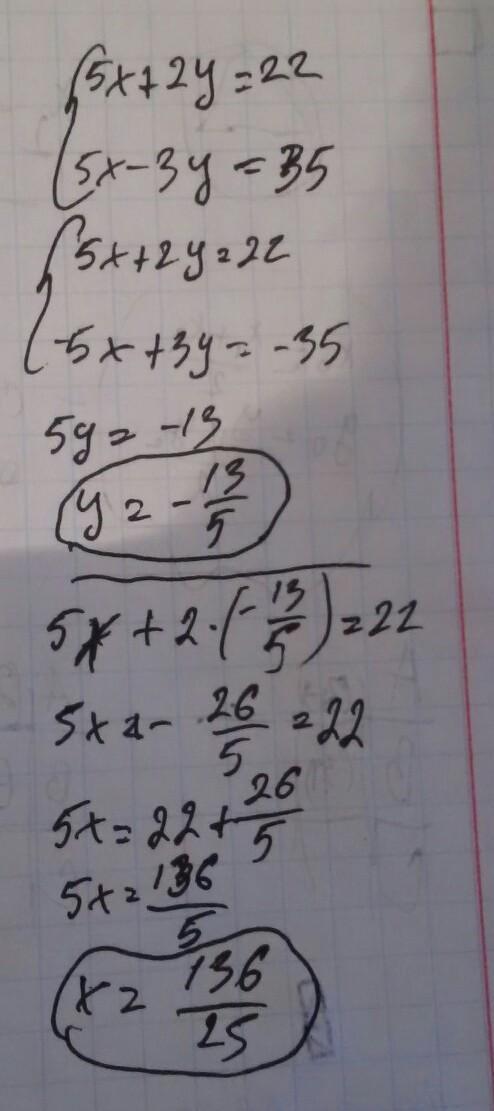 5x+2y=22
5x-3y=35
5x+2y=22
-5x+3y=-35
5y=-13
y=-13/5
5x+2·(-13/5)=22
5x-26/5=22
5x=22+26/5
5x=136/5
x=136/25